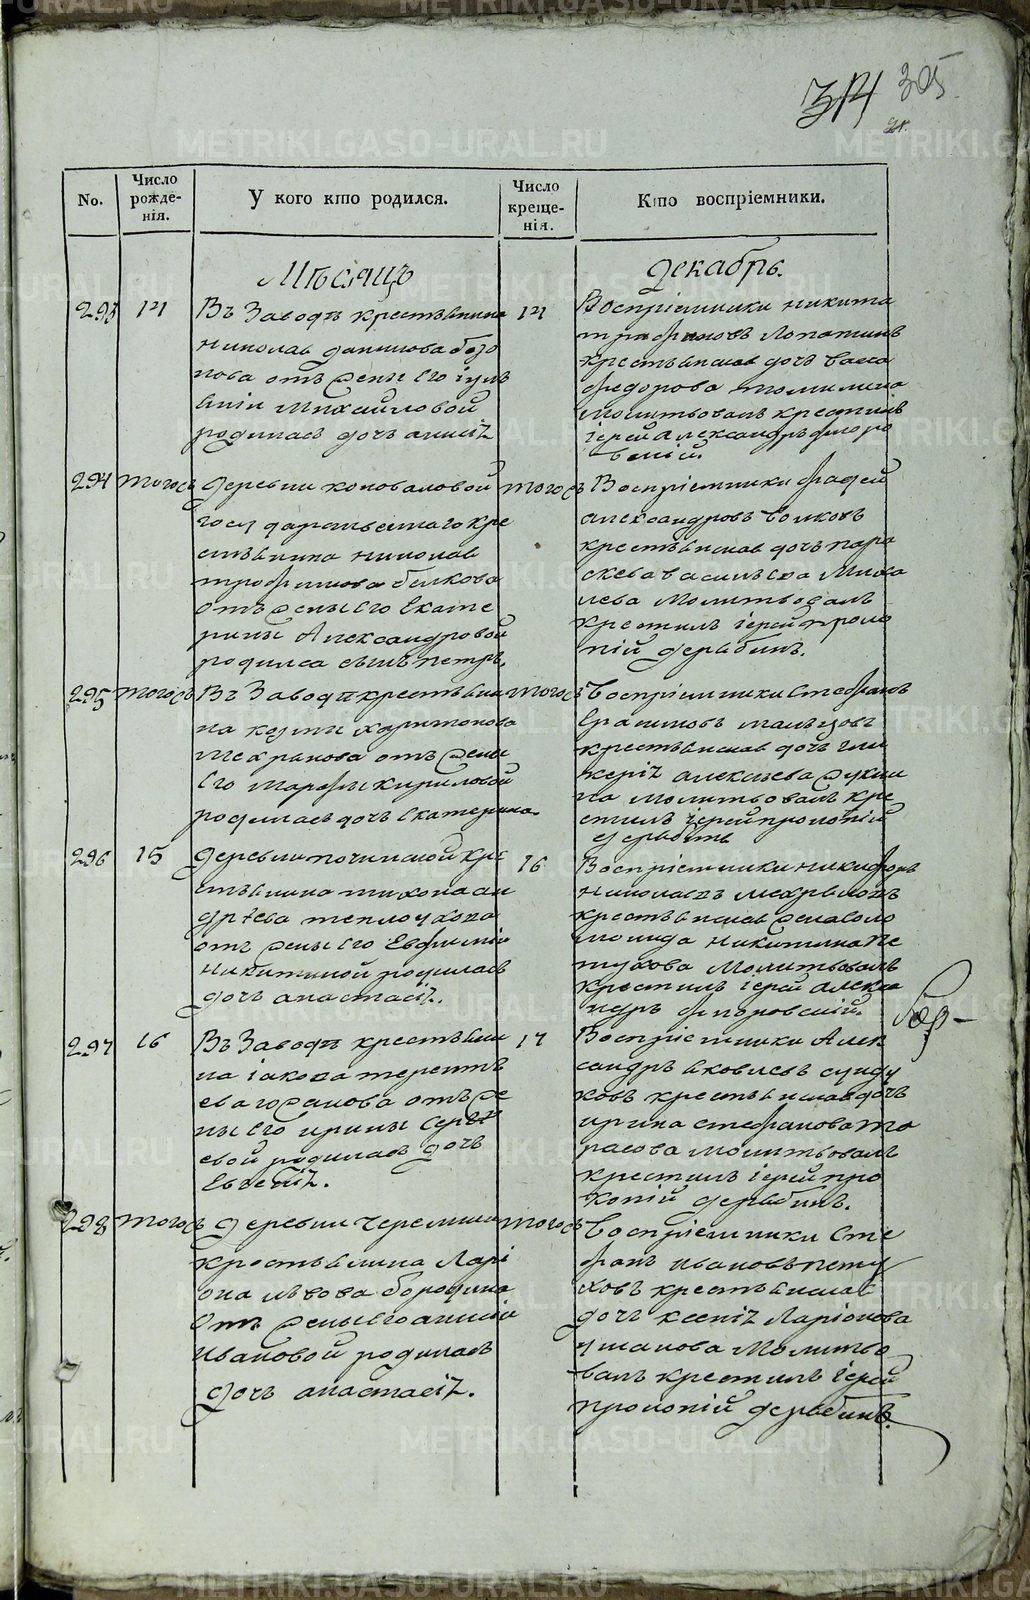 314 305
No.
Число рожде-нія.
У кого кто родился.
Число креще-нія.
Кто воспріемники.
Мѣсяцъ
Декабрь.
293 14
Въ Заводѣ крестьянина
николая данилова
отъ жены его іуль
яніи михайловой
родилась дочь анисія
14
Воспріемники никита
трофимовъ Лопатинъ
крестьянская дочь васса
федорова томилина
молитвовалъ крестилъ
іерей александръ флоро
вскій.
294 тогожъ
деревни коноваловой
государственнаго кре
стьянина николая
трофимова белкова
отъ жены его екате
рины Александровой
родился сынъ петръ.
тогожъ
Воспріемники фадей
александровъ волковъ
крестьянская дочь пара
скева васильева Миха
лева Молитвовалъ
крестилъ іерей проко
пій дерябинъ.
295 тогожъ
Въ Заводѣ крестьяни
на козмы харитонова
Мехрякова отъ жены
его марфы кириловой
родилась дочь екатерина.
тогожъ
воспріемники стефанъ
крестьянская дочь гли
керія алексѣева
на молитвовалъ кре
стилъ іерей прокопій
дерябинъ
296 15
деревни починской кре
стьянина тихона ан
дрѣева теплоухова
отъ жены его Евфиміи
никитиной родилась
дочь анастасія.
16
Воспріемники никифоръ
николаевъ мехряковъ
крестьянская жена соло
монида никитина пе
тухова Молитвовалъ
крестилъ іерей алекса
ндръ флоровскій.
297 16
Въ Заводѣ крестьяни
на іакова терентѣ
ева гожанова отъ же
ны его ирины сергѣ
евой родилась дочь
Евгенія.
17
Воспріемники Алек
сандръ яковлевъ сунду
ковъ крестьянская дочь
ирина стефанова та
расова молитвовалъ
крестилъ іерей про
копій дерябинъ.
298 тогожъ
деревни черемиски
крестьянина Лари
она львова бородина
отъ жены его анисіи
ивановой родилась
дочь анастасія.
тогожъ
воспріемники сте
фанъ ивановъ пету
ховъ крестьянская
дочь ксенія Ларіонова
ушакова Молитво
валъ крестилъ іерей
прокопій дерябинъ.
METRIKI.GASO-URAL.RU